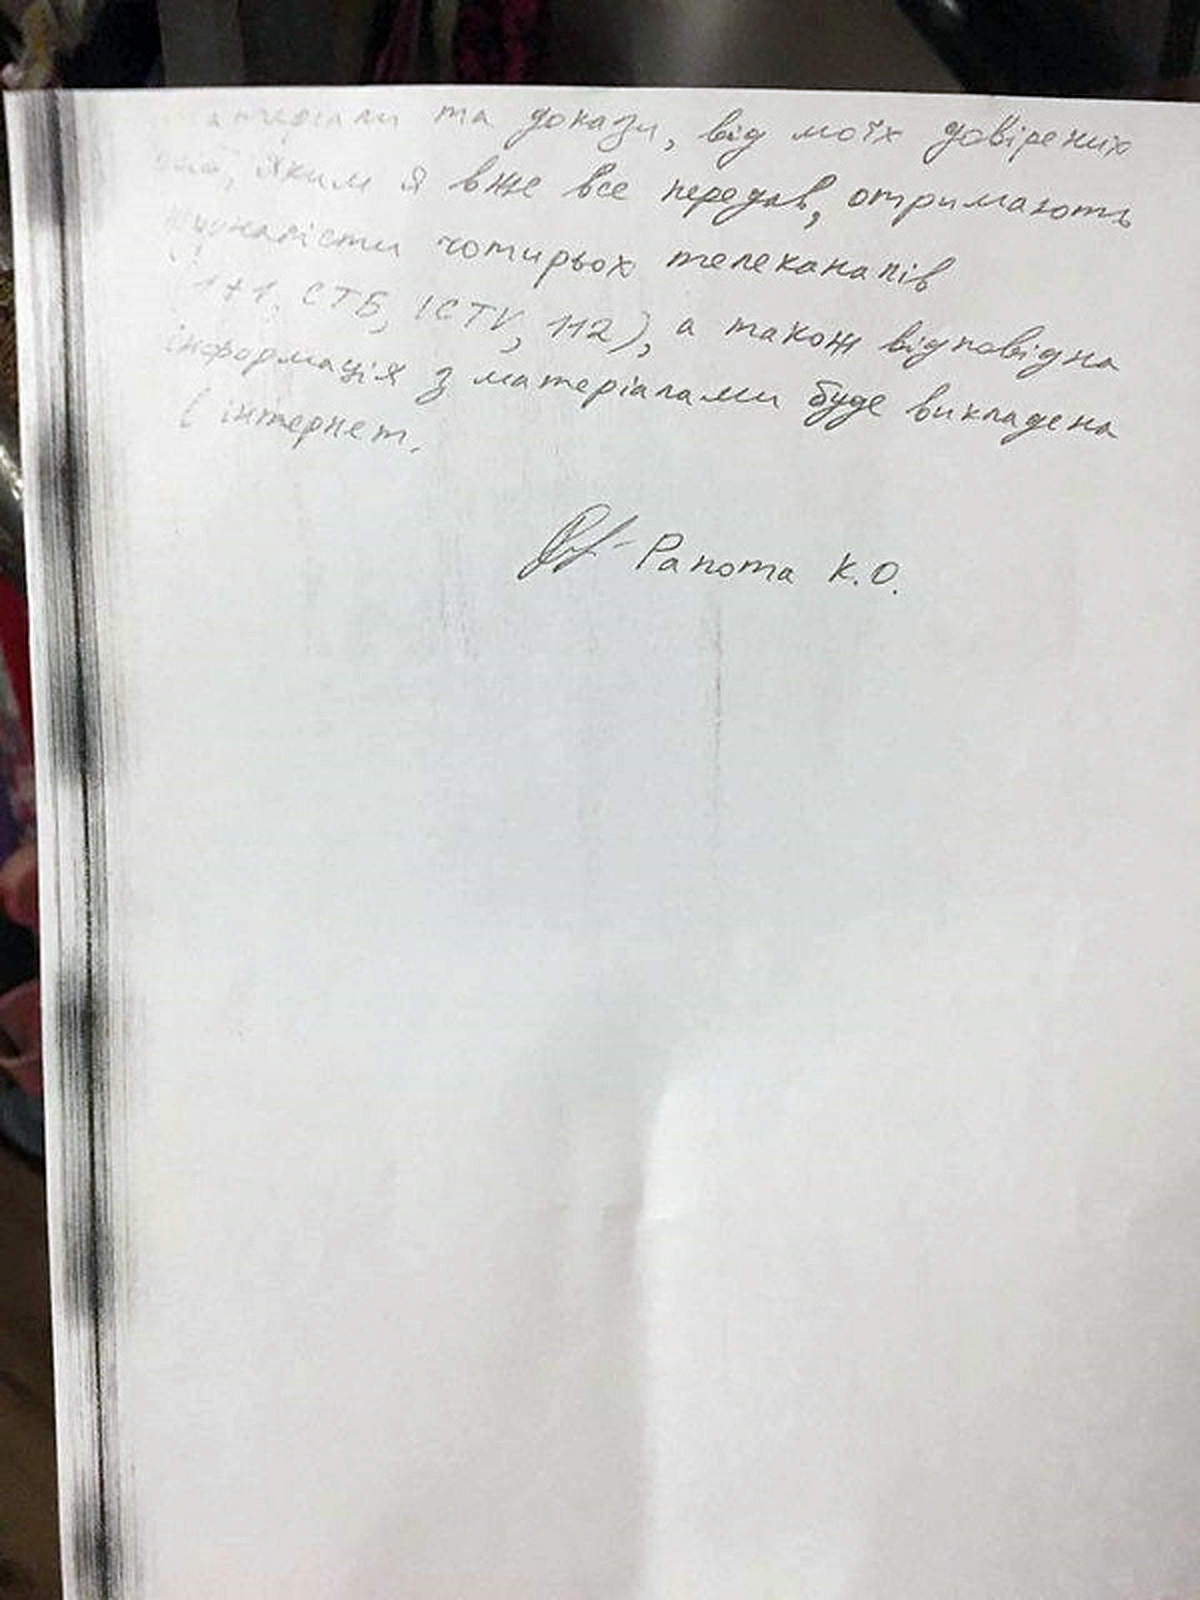 матеріали та докази, від моїх довірених
осіб, яким я вже все передав, отримають
журналісти чотирьох телеканалів
(1+1, СТБ, ICTV, 112), а також відповідна
інформація з матеріалами буде викладена
в інтернет.
Рапота К.О.